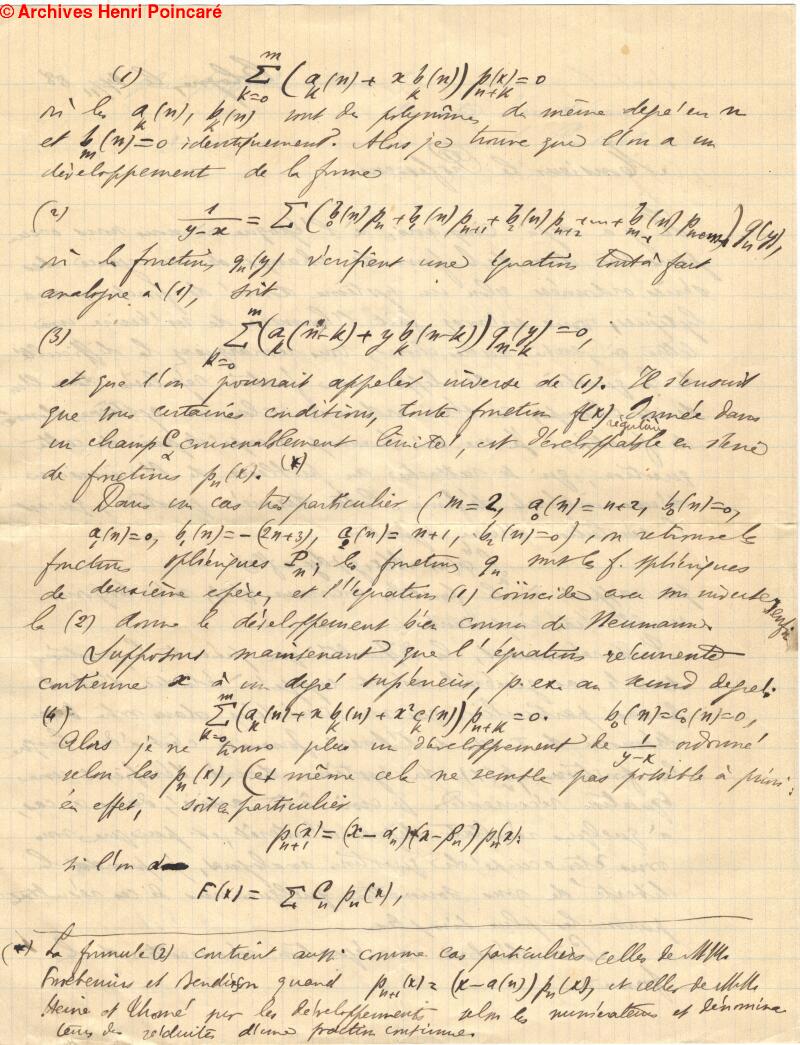 © Archives Henri Poincaré
(1) $\sum_{k=0}^{m} (a_k(n) + x b_k(n)) p_{n+k}(x) = 0$
où les $a_k(n)$, $b_k(n)$ sont des polynômes du même degré en n
et $b_m(n) = 0$ identiquement. Alors je trouve que l'on a un
développement de la forme
(2) $\frac{1}{y-x} = \sum (b_0(n) p_n + b_1(n) p_{n+1} + b_2(n) p_{n+2} + ... + b_{m-1}(n) p_{n+m-1}) q_n(y),$
où les fonctions $q_n(y)$ vérifient une équation tout à fait
analogue à (1), soit
(3) $\sum_{k=0}^{m} (a_k(n-k) + y b_k(n-k)) q_{n-k}(y) = 0,$
et que l'on pourrait appeler inverse de (1). Il s'ensuit
que sous certaines conditions, toute fonction f(x) donnée dans
régulière
un champ C convenablement limité, est développable en série
de fonctions $p_n(x)$. (*)
Dans un cas très particulier (m = 2, $a_0(n) = n+2$, $b_0(n) = 0$,
$a_1(n) = 0$, $b_1(n) = -(2n+3)$, $a_2(n) = n+1$, $b_2(n) = 0$), on retrouve les
fonctions sphériques $P_n$; les fonctions $q_n$ sont les f. sphériques
de deuxième espèce, et l'équation (1) coïncide avec son inverse
la (2) donne le développement bien connu de Neumann.
Supposons maintenant que l'équation récurrente
contienne x à un degré supérieur, p. ex. au second degré:
(4) $\sum_{k=0}^{m} (a_k(n) + x b_k(n) + x^2 c_k(n)) p_{n+k} = 0.$ $b_0(n) = c_0(n) = 0,$
Alors je ne trouve plus un développement de $\frac{1}{y-x}$ ordonné
selon les $p_n(x)$, (et même cela ne semble pas possible à priori:
en effet, soit en particulier
$p_{n+1}(x) = (x - \alpha_n)(x - \beta_n) p_n(x):$
si l'on a
$F(x) = \sum C_n p_n(x),$
(*) La formule (2) contient aussi comme cas particuliers celles de MM.
Frobenius et Bendixson quand $p_{n+1}(x) = (x - a(n)) p_n(x)$, et celles de MM.
Heine et Thomé pour les développements selon les numérateurs et dénomina
teurs des réduites d'une fraction continue.